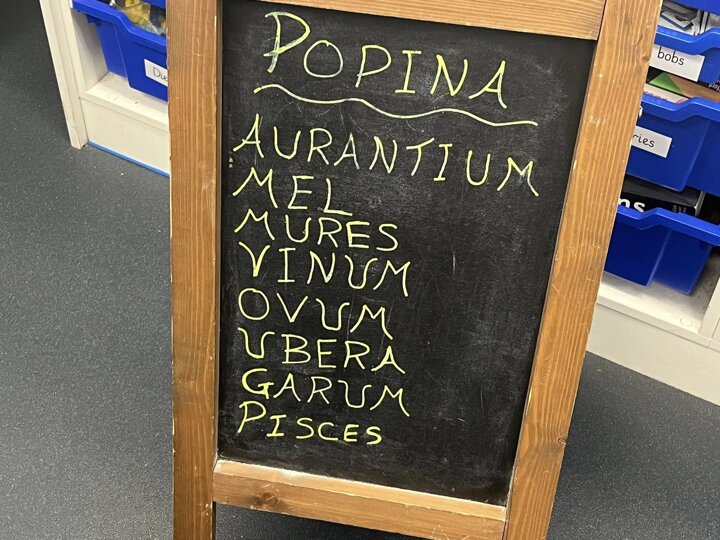 POPINA
AURANTIUM
MEL
MURES
VINUM
OVUM
UBERA
GARUM
PISCES
bobs
ries
ns
Die